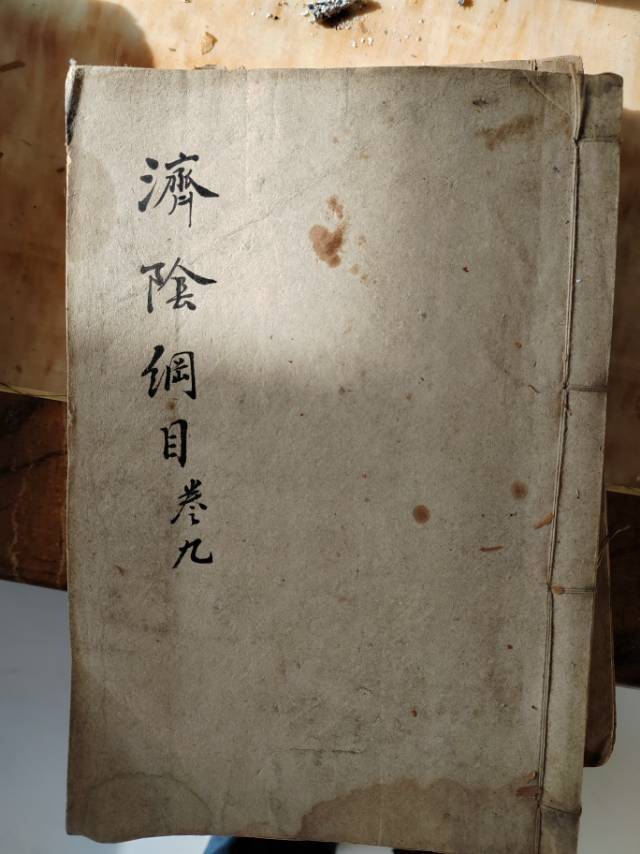 濟陰綱目卷九